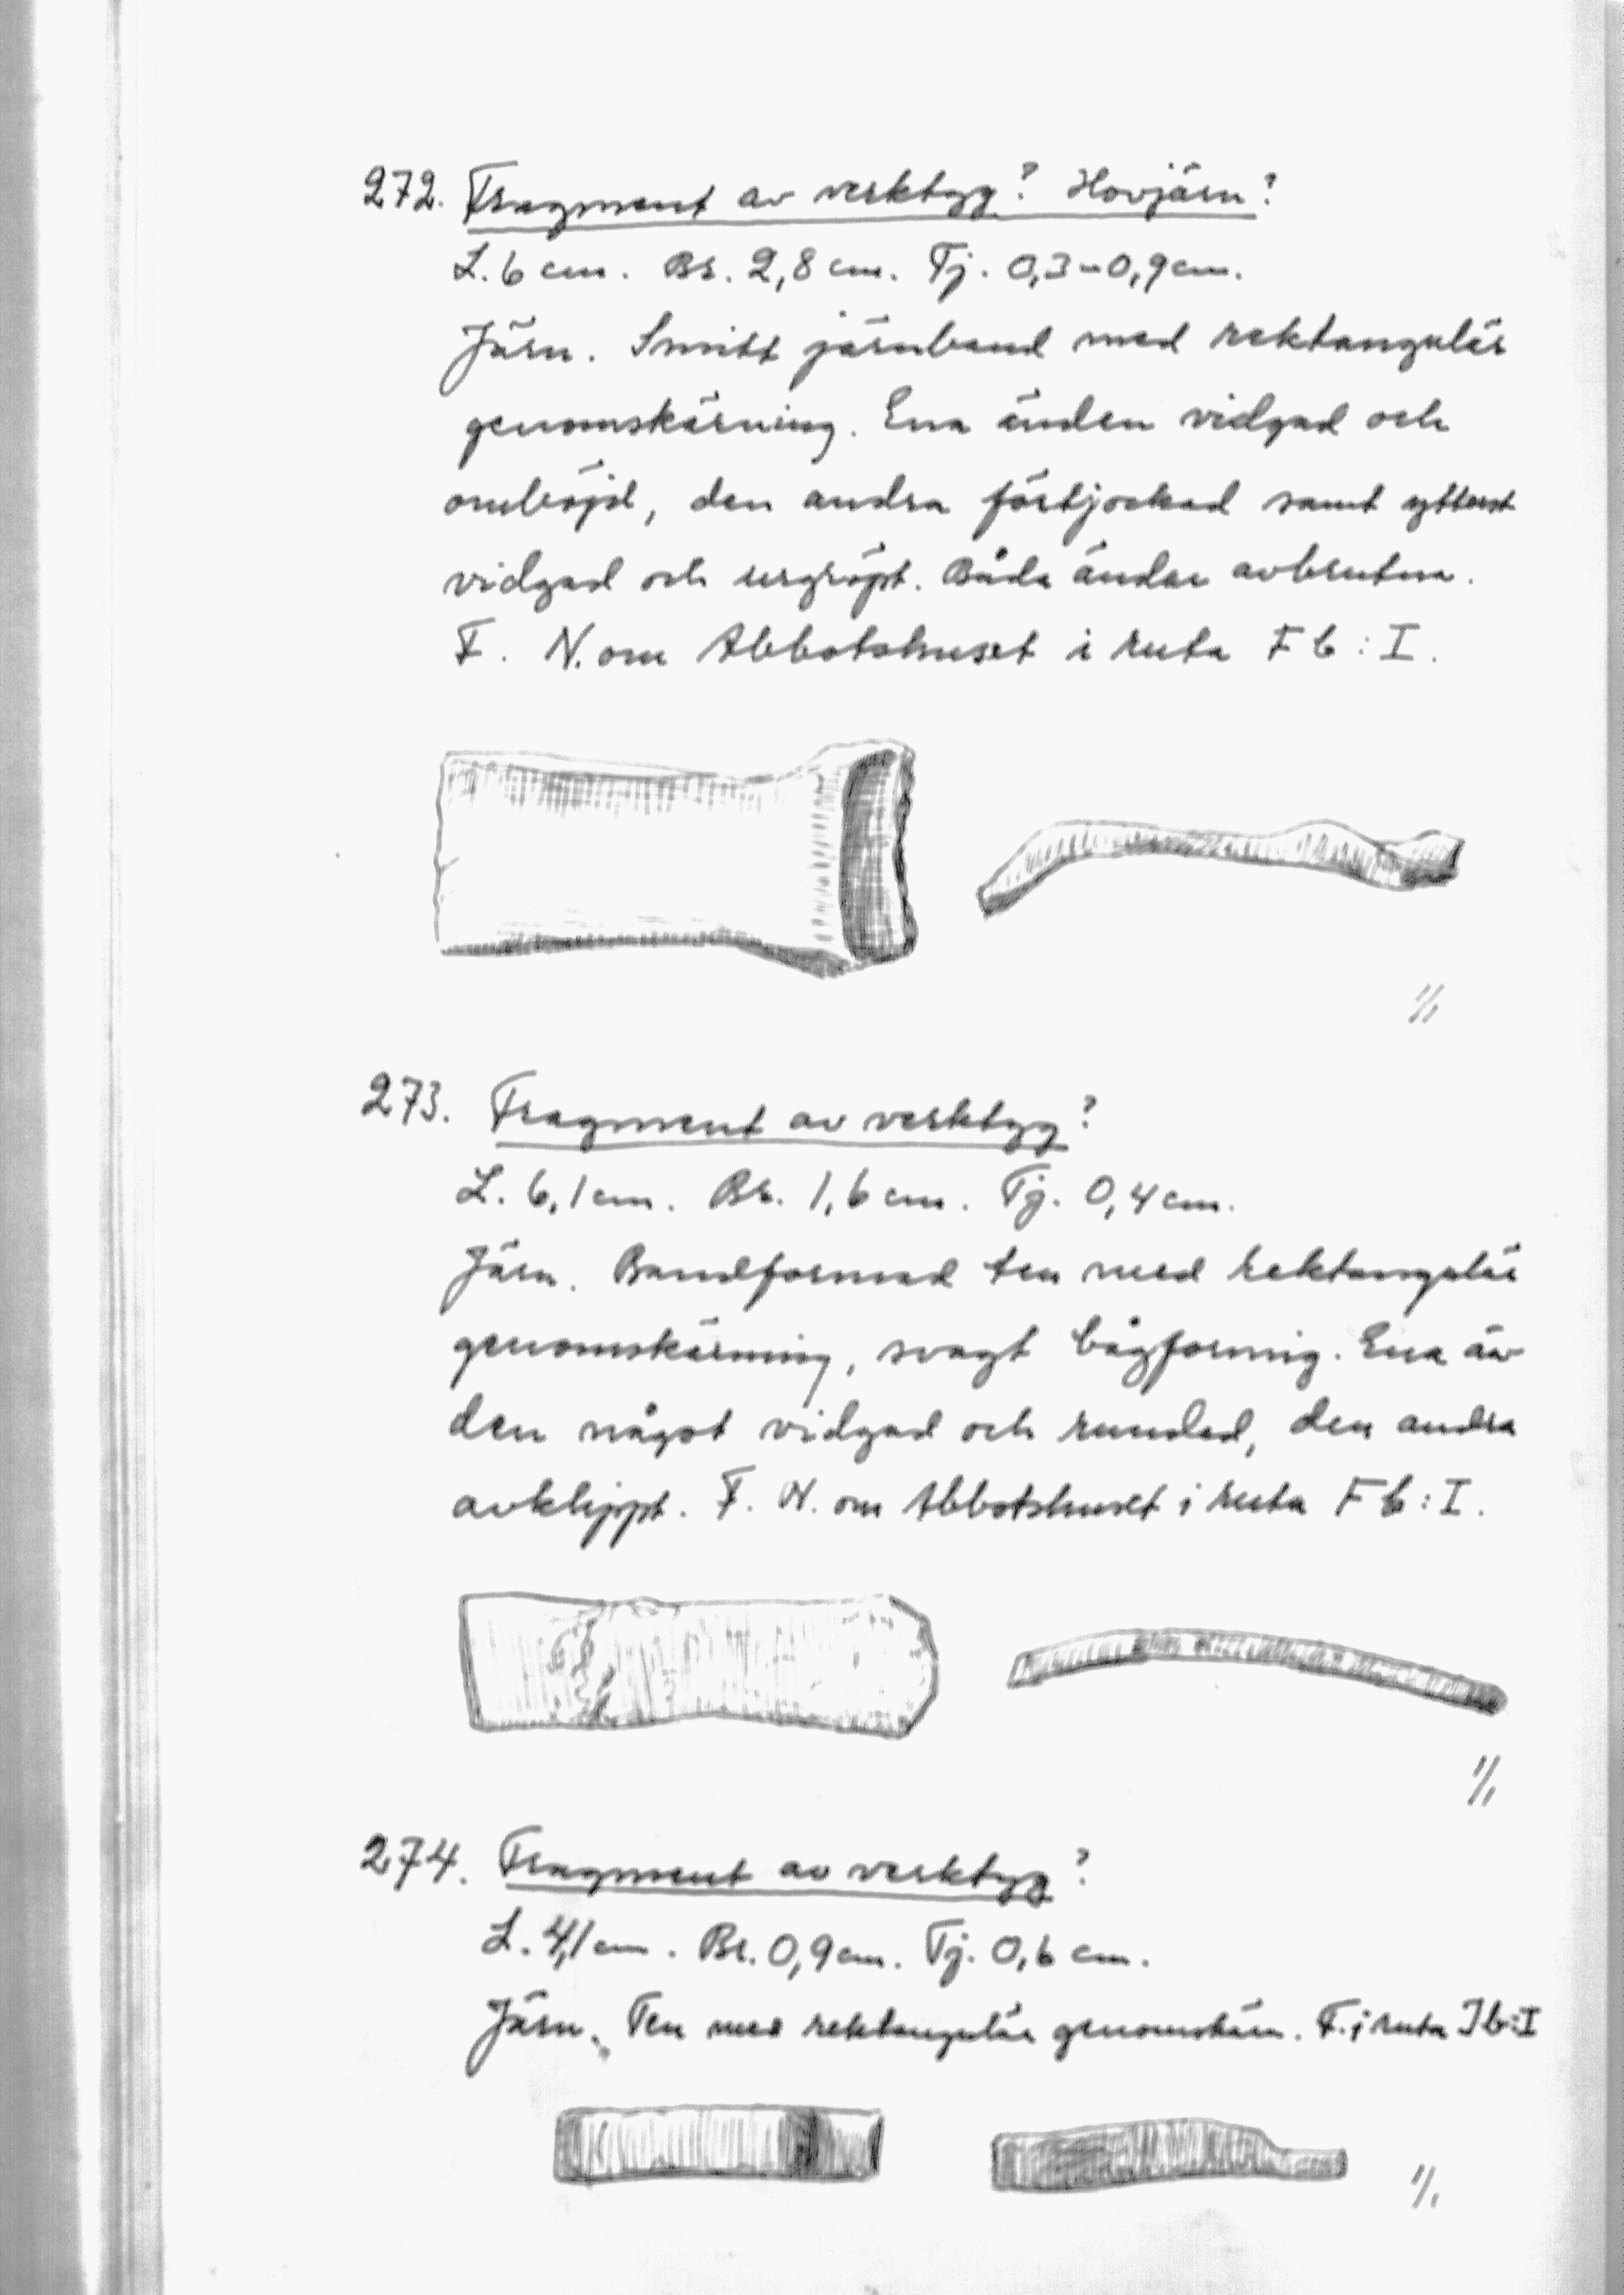 272. Fragment av verktyg? Hovjärn?
L. 6 cm. Br. 2,8 cm. Tj. 0,3-0,9 cm.
Järn. Smitt järnband med rektangulär
genomskärning. Ena änden vidgad och
omböjd, den andra förtjockad samt ytterst
vidgad och urgröpt. Båda ändar avbrutna.
F. N. om Abbotshuset i ruta F b : I.
1/1
273. Fragment av verktyg?
L. 6,1 cm. Br. 1,6 cm. Tj. 0,4 cm.
Järn. Bandformad ten med rektangulär
genomskärning, svagt bågformig. Ena än
den något vidgad och rundad, den andra
avklippt. F. N. om Abbotshuset i ruta F b : I.
1/1
274. Fragment av verktyg?
L. 4,1 cm. Br. 0,9 cm. Tj. 0,6 cm.
Järn. Ten med rektangulär genomskärn. F. i ruta I b : I
1/1